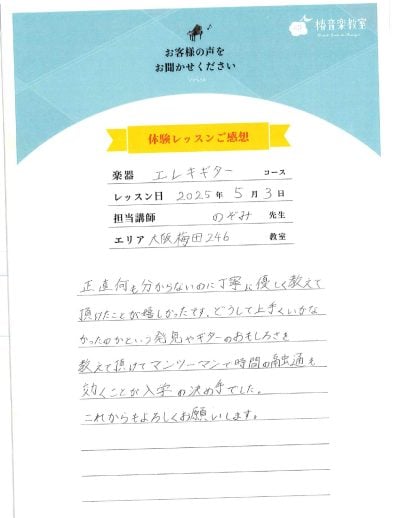 お客様の声を
お聞かせください
椿音楽教室
体験レッスンご感想
楽器 エレキギター コース
レッスン日 2025年 5月3日
担当講師 のぞみ 先生
エリア 大阪梅田246 教室
正直何も分からないのに丁寧に優しく教えて
頂けたことが嬉しかったです。どうして上手くいかな
かったのかという発見やギターのおもしろさを
教えて頂けてマンツーマンで時間の融通も
効くことが入学の決め手でした。
これからもよろしくお願いします。